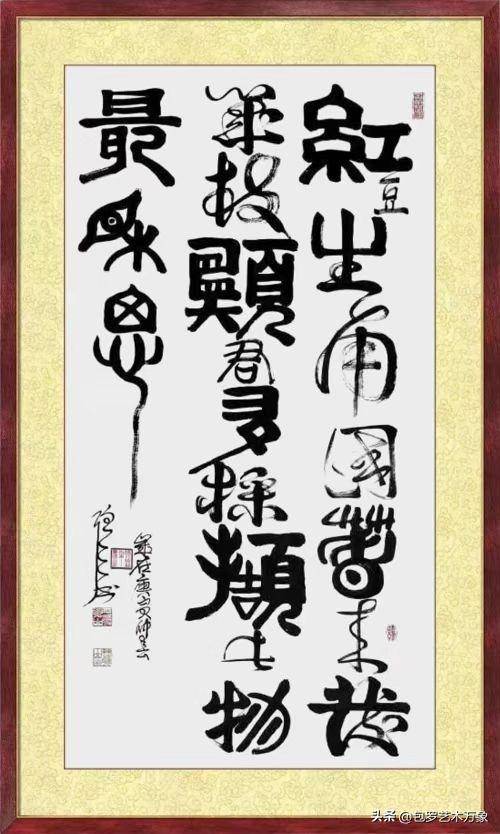 紅豆生南國春來發
幾枝願君多採擷此物
最相思
头条 @包罗艺术万象